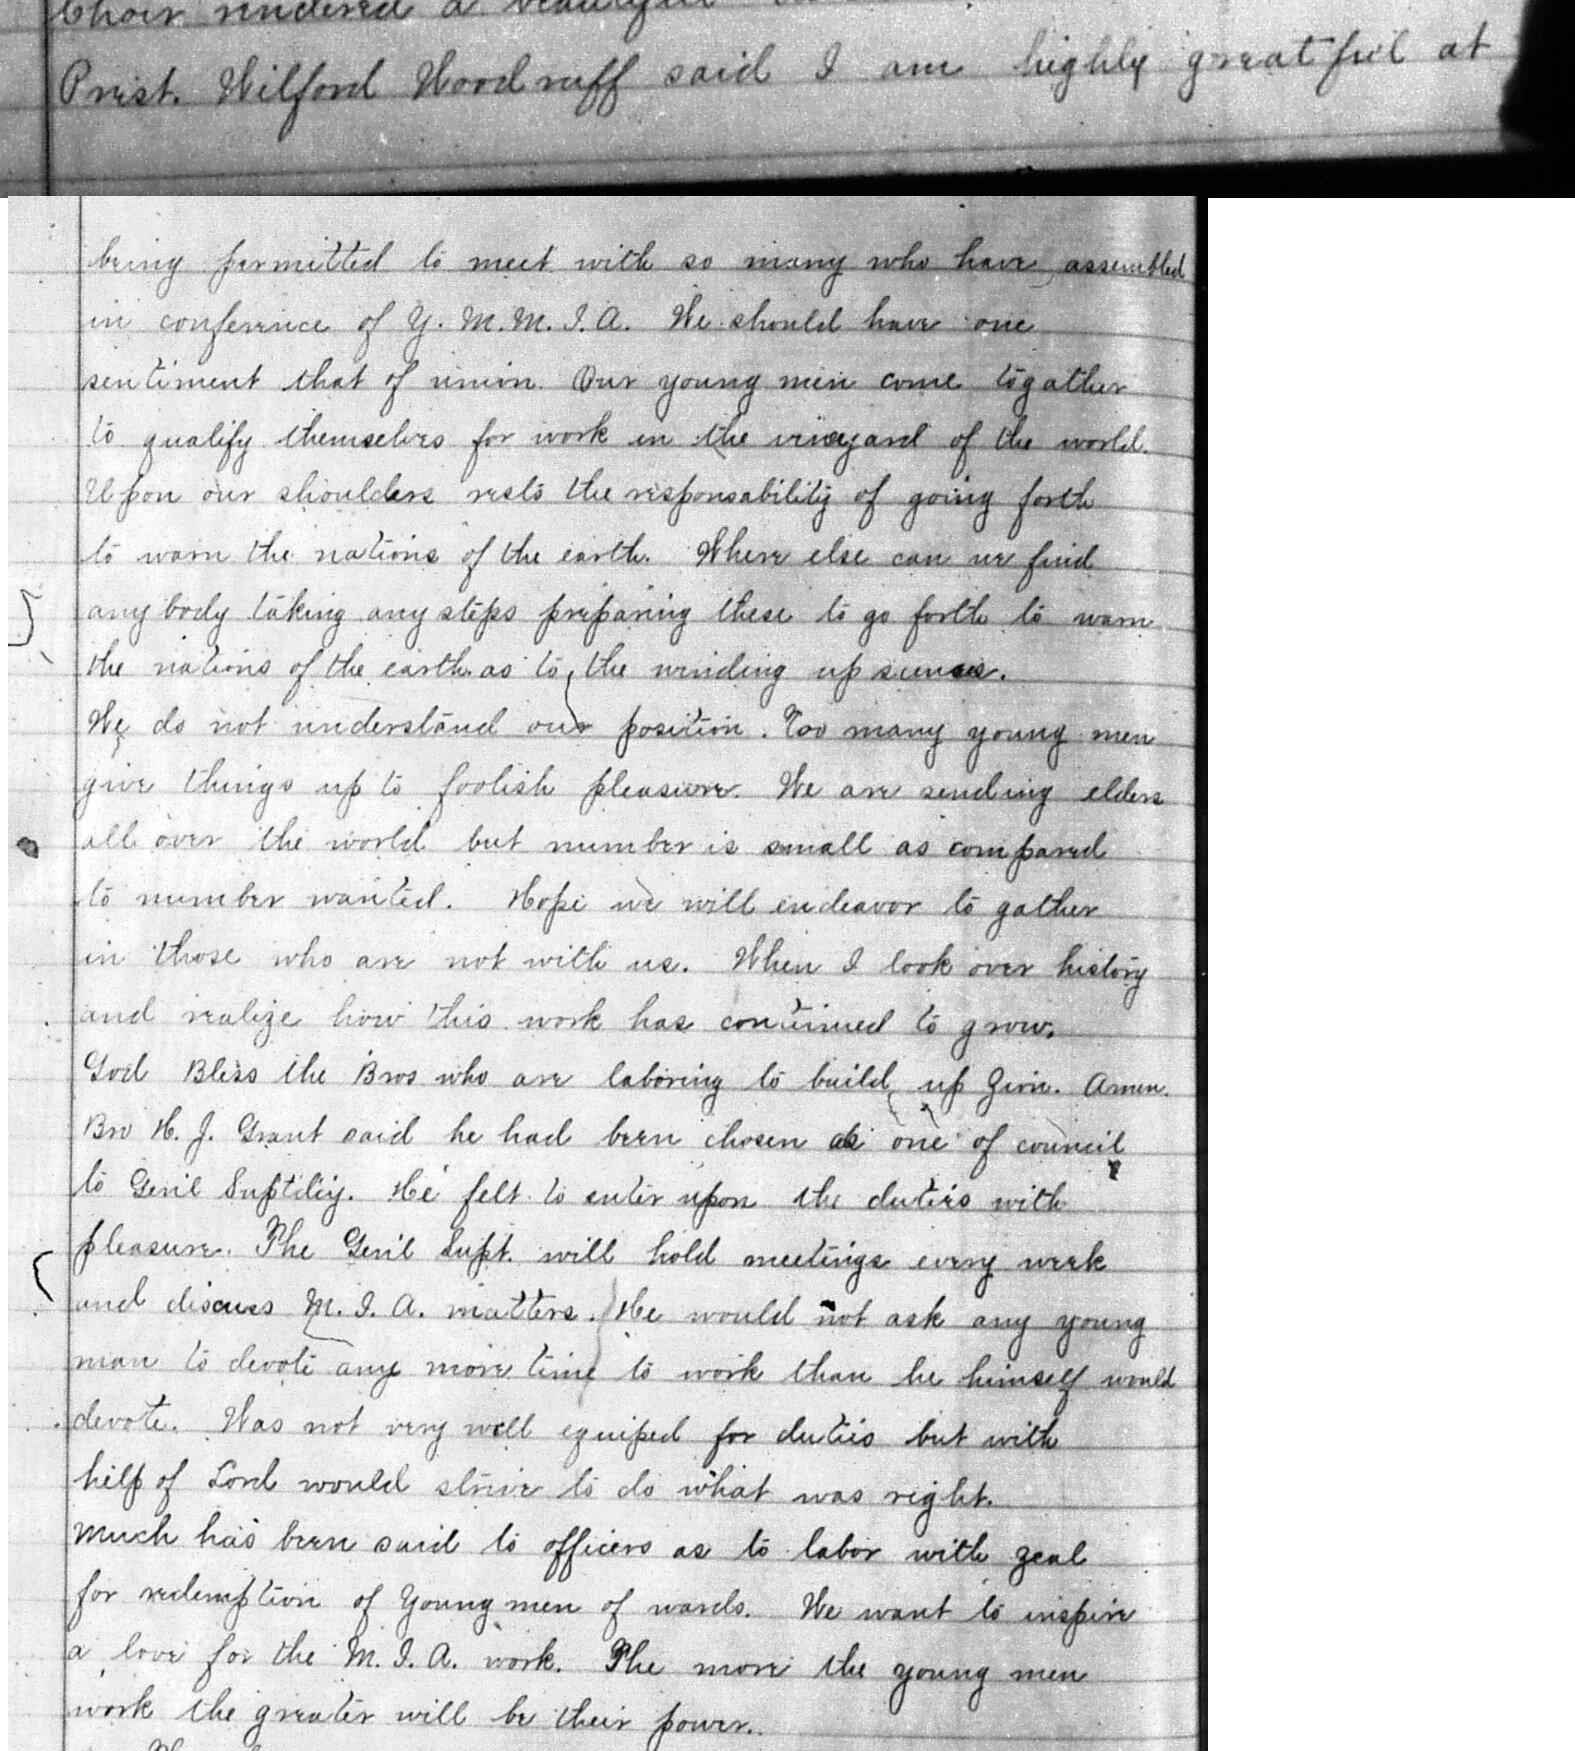 Choir rendered a beautiful
Prest. Wilford Woodruff said I am highly greatful at
being permitted to meet with so many who have assembled
in conference of Y. M. M. I. A. We should have one
sentiment that of union. Our young men come togather
to qualify themselves for work in the vineyard of the world.
Upon our shoulders rests the responsability of going forth
to warn the nations of the earth. Where else can we find
any body taking any steps preparing these to go forth to warn
the nations of the earth as to the winding up scenes.
We do not understand our position. Too many young men
give things up to foolish pleasure. We are sending elders
all over the world but number is small as compared
to number wanted. Hope we will endeavor to gather
in those who are not with us. When I look over history
and realize how this work has continued to grow.
God Bless the Bros who are laboring to build up Zion. Amen.
Bro H. J. Grant said he had been chosen as one of council
to Genl Suptcy. He felt to enter upon the duties with
pleasure. The Genl Supt. will hold meetings every week
and discuss M. I. A. matters. He would not ask any young
man to devote any more time to work than he himself would
devote. Was not very well equiped for duties but with
help of Lord would strive to do what was right.
Much has been said to officers as to labor with zeal
for redemption of Young men of wards. We want to inspire
a love for the M. I. A. work. The more the young men
work the greater will be their power.